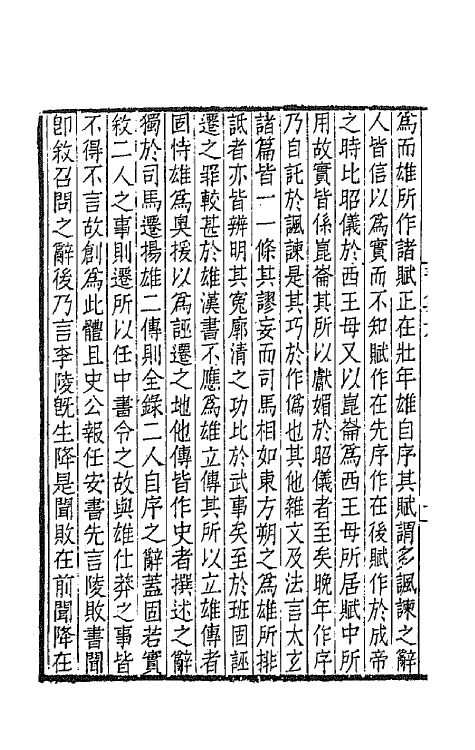 爲而雄所作諸賦正在壯年雄自序其賦謂多諷諫之辭
人皆信以爲實而不知賦作在先序作在後賦作於成帝
之時比昭儀於西王母又以崑崙爲西王母所居賦中所
用故實皆係崑崙其所以獻媚於昭儀者至矣晚年作序
乃自託於諷諫是其巧於作僞也其他雜文及法言太玄
諸篇皆一一條其謬妄而司馬相如東方朔之爲雄所排
詆者亦皆辨明其寃廓清之功比於武事矣至於班固誣
遷之罪較甚於雄漢書不應爲雄立傳其所以立雄傳者
固恃雄爲奧援以爲誣遷之地他傳皆作史者撰述之辭
獨於司馬遷揚雄二傳則全錄二人自序之辭蓋固若實
敘二人之事則遷所以任中書令之故與雄仕莽之事皆
不得不言故創爲此體且史公報任安書先言陵敗書聞
卽敘召問之辭後乃言李陵旣生降是聞敗在前聞降在